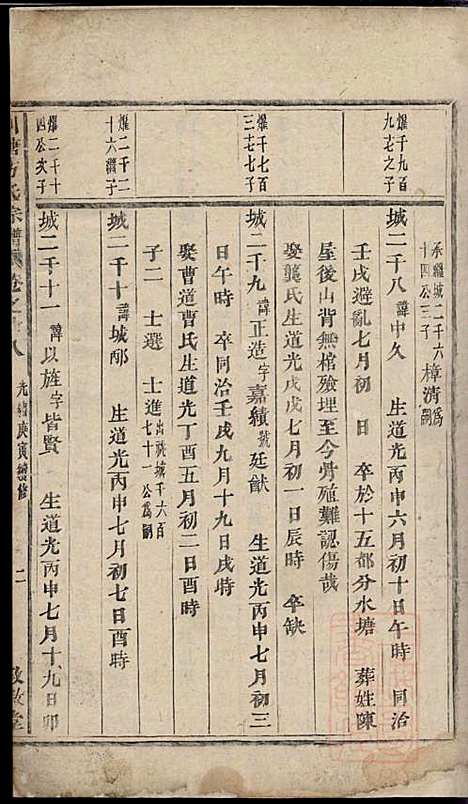 承繼城二千六
十四公三子樟清為
嗣
爆千九百
九七之子
城二千八 諱中久 生道光丙申六月初十日午時 同治
壬戌避亂七月初 日 卒於十五都分水塘 葬姓陳
屋後山背無棺殮埋至今骨殖難認傷哉
娶龔氏生道光戊戌七月初一日辰時 卒缺
爆千七百
三七七子
城二千九 諱正造 字嘉績 號廷猷 生道光丙申七月初三
日午時 卒同治壬戌九月十九日戌時
娶曹道曹氏生道光丁酉五月初二日酉時
子二 士選 士進 出祧城千六百
七十一公為嗣
爆二千二
十六繼子
城二千十 諱城邴 生道光丙申七月初七日酉時
爆二千十
四公次子
城二千十一 諱以旌 字皆賢 生道光丙申七月十九日卯
方氏宗譜 卷之 八 光緒庚寅續修 二 敦敘堂